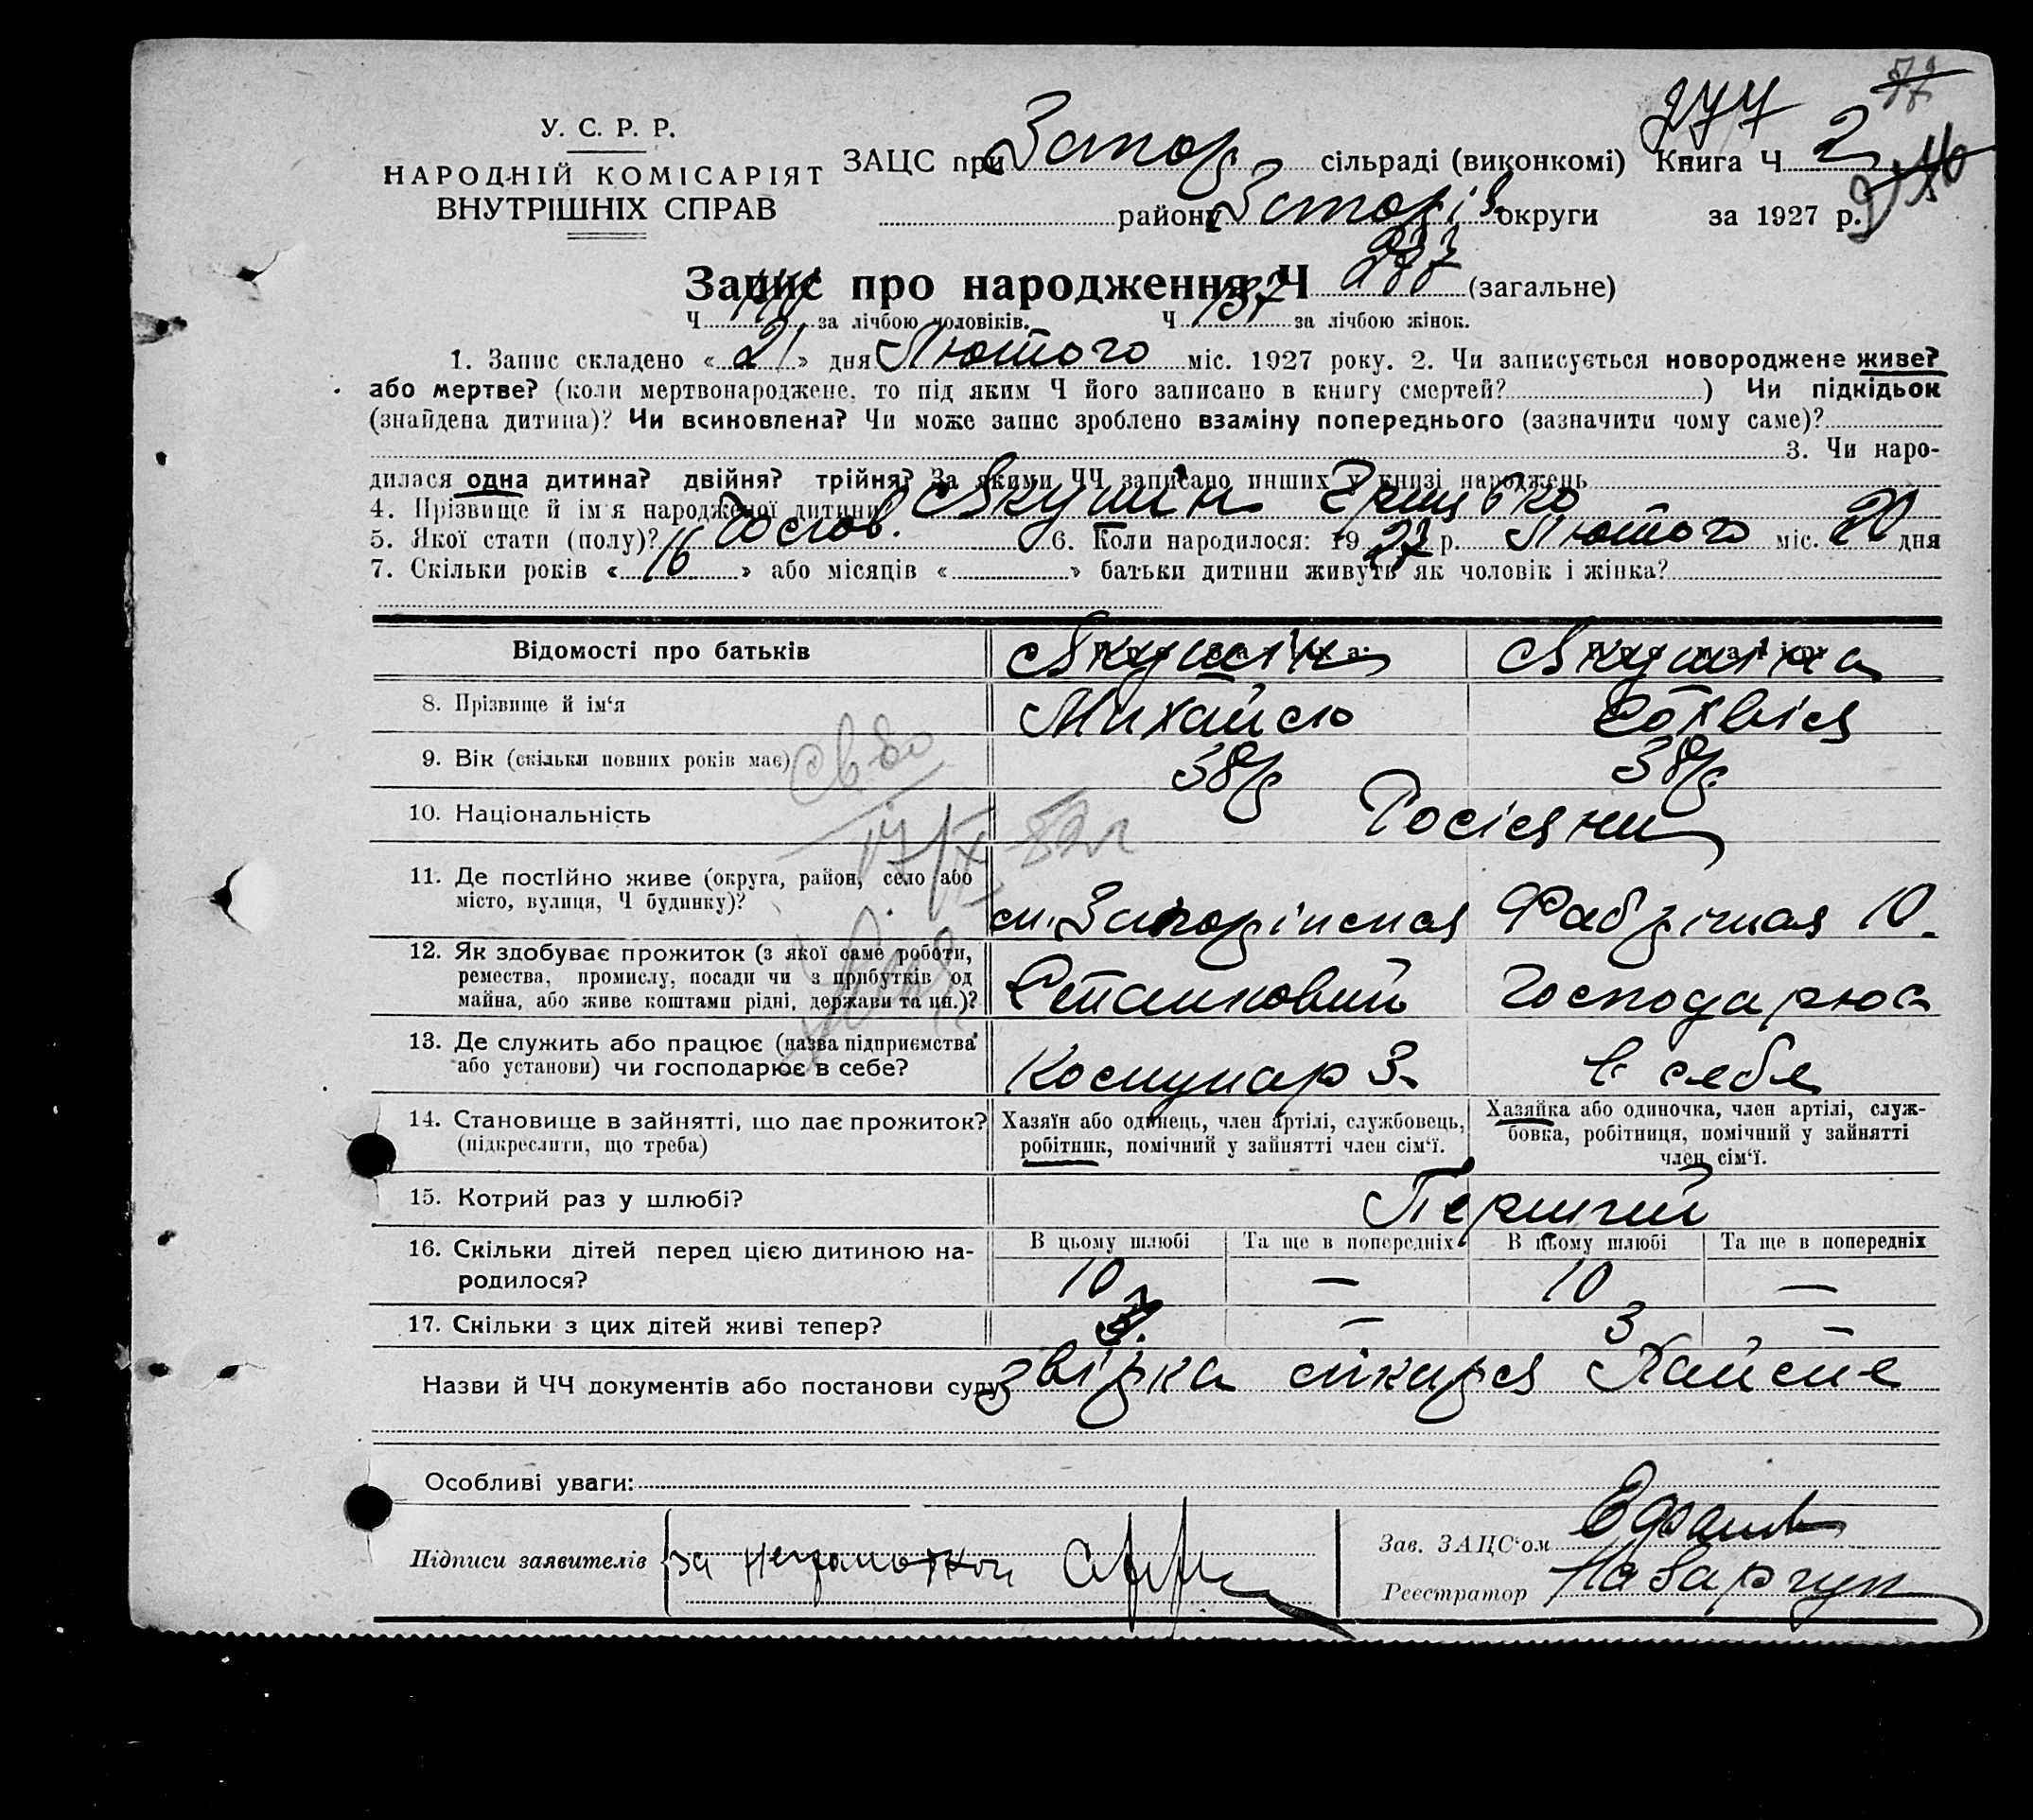 277
У. С. Р. Р.
НАРОДНІЙ КОМІСАРІЯТ
ВНУТРІШНІХ СПРАВ
ЗАЦС при Запор сільраді (виконкомі) Книга Ч 2
району Запоріз. округи за 1927 р.
Запис про народження Ч 277 (загальне)
Ч за лічбою чоловіків. Ч 137 за лічбою жінок.
1. Запис складено « 21 » дня Лютого міс. 1927 року. 2. Чи записується новороджене живе?
або мертве? (коли мертвонароджене, то під яким Ч його записано в книгу смертей? ) Чи підкідьок
(знайдена дитина)? Чи всиновлена? Чи може запис зроблено взаміну попереднього (зазначити чому саме)?
3. Чи наро-
дилася одна дитина? двійня? трійня? За якими ЧЧ записано инших у книзі народжень
4. Прізвище й ім'я народженої дитини Якушин Грицько
5. Якої стати (полу)? Чоглов. 6. Коли народилося: 1927 р. Лютого міс. 20 дня
7. Скільки років « 16 » або місяців « » батьки дитини живуть як чоловік і жінка?
Відомості про батьків Якушин Якушина
8. Прізвище й ім'я Михайло
9. Вік (скільки повних років має) 38 р 38 р.
10. Національність Росіяни
11. Де постійно живе (округа, район, село або
місто, вулиця, Ч будинку)? Фабрична 10.
12. Як здобуває прожиток (з якої саме роботи,
ремества, промислу, посади чи з прибутків од
майна, або живе коштами рідні, держави та ин.)? Станковий Господарює
13. Де служить або працює (назва підприємства
або установи) чи господарює в себе? Комунар З. в себе
14. Становище в зайнятті, що дає прожиток?
(підкреслити, що треба)
Хазяїн або одинець, член артілі, службовець,
робітник, помічний у зайнятті член сім'ї.
Хазяйка або одиночка, член артілі, служ-
бовка, робітниця, помічний у зайнятті
член сім'ї.
15. Котрий раз у шлюбі? Перший
16. Скільки дітей перед цією дитиною на-
родилося?
В цьому шлюбі Та ще в попередніх В цьому шлюбі Та ще в попередніх
10 — 10 —
17. Скільки з цих дітей живі тепер? 3. — 3 —
Назви й ЧЧ документів або постанови суду звірка лікаря
Особливі уваги:
Підписи заявителів за неграмотной
Зав. ЗАЦС'ом
Реєстратор